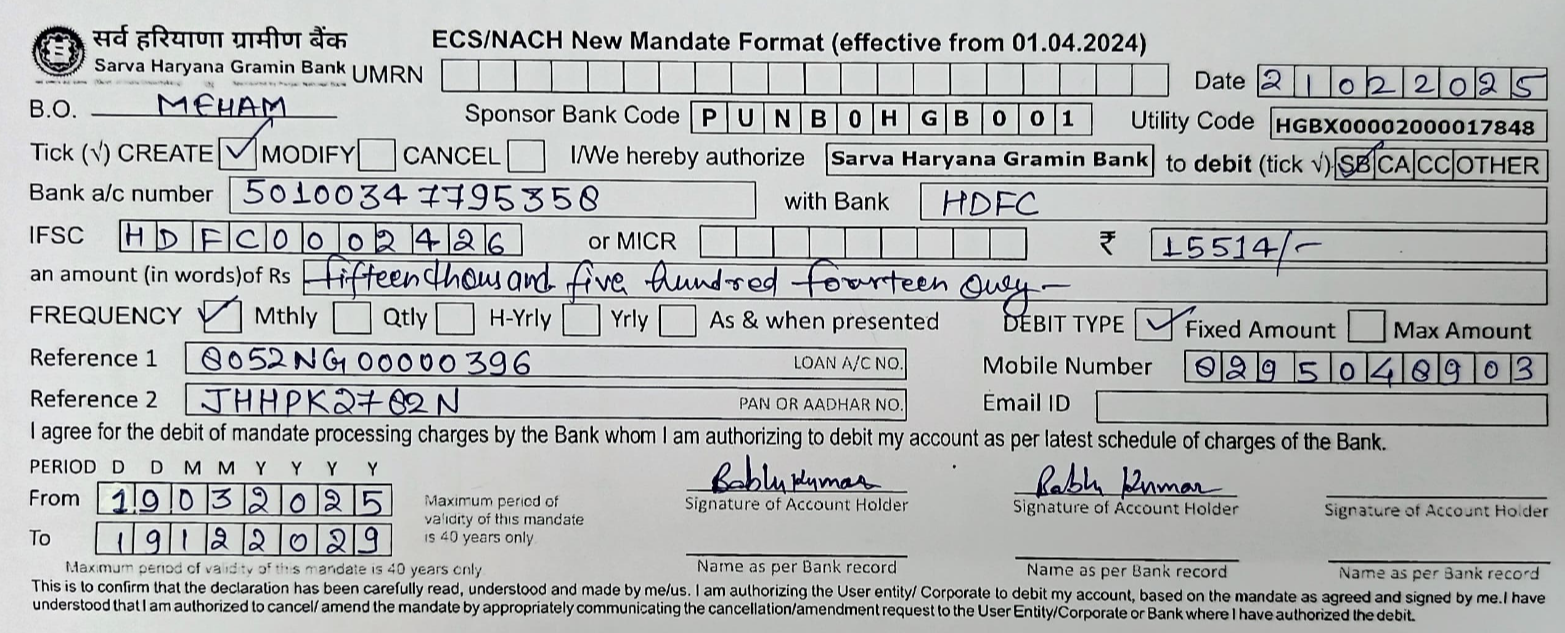 सर्व हरियाणा ग्रामीण बैंक
Sarva Haryana Gramin Bank
ECS/NACH New Mandate Format (effective from 01.04.2024)
UMRN Date 21022025
B.O. MEHAM Sponsor Bank Code PUNB0HGB001 Utility Code HGBX00002000017848
Tick (√) CREATE ✓ MODIFY CANCEL I/We hereby authorize Sarva Haryana Gramin Bank to debit (tick √) SB CA CC OTHER
Bank a/c number 50100347795358 with Bank HDFC
IFSC HDFC0002426 or MICR ₹ 15514/-
an amount (in words)of Rs fifteen thousand five hundred fourteen only-
FREQUENCY ✓ Mthly Qtly H-Yrly Yrly As & when presented DEBIT TYPE ✓ Fixed Amount Max Amount
Reference 1 8052NG00000396 LOAN A/C NO. Mobile Number 8295048903
Reference 2 JHHPK2782N PAN OR AADHAR NO. Email ID
I agree for the debit of mandate processing charges by the Bank whom I am authorizing to debit my account as per latest schedule of charges of the Bank.
PERIOD D D M M Y Y Y Y
From 19032025
To 19122029
Maximum period of
validity of this mandate
is 40 years only
Bablu Kumar
Signature of Account Holder
Bablu Kumar
Signature of Account Holder
Signature of Account Holder
Name as per Bank record
Name as per Bank record
Name as per Bank record
Maximum period of validity of this mandate is 40 years only
This is to confirm that the declaration has been carefully read, understood and made by me/us. I am authorizing the User entity/ Corporate to debit my account, based on the mandate as agreed and signed by me.I have
understood that I am authorized to cancel/ amend the mandate by appropriately communicating the cancellation/amendment request to the User Entity/Corporate or Bank where I have authorized the debit.